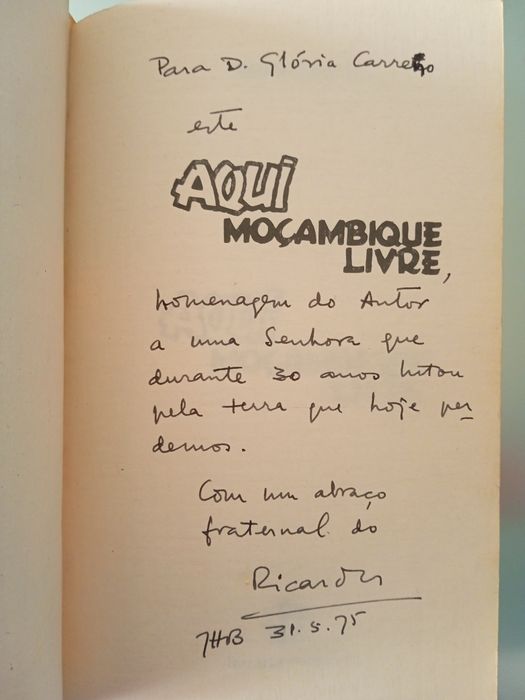 Para D. Glória Carreño
este
AQUI
MOÇAMBIQUE
LIVRE,
homenagem do Autor
a uma Senhora que
durante 30 anos lutou
pela terra que hoje per
demos.
Com um abraço
fraternal do
31.5.75